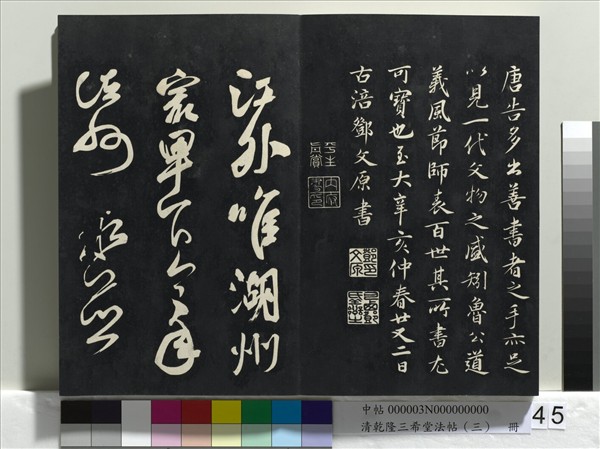 唐告多出善書者之手亦足
以見一代文物之盛矧魯公道
義風節師表百世其所書尤
可寶也至大辛亥仲春廿又二日
古涪鄧文原書
江外唯湖州
最卑下今年
諸州水並
中帖 000003N000000000
清乾隆三希堂法帖（三） 冊
45